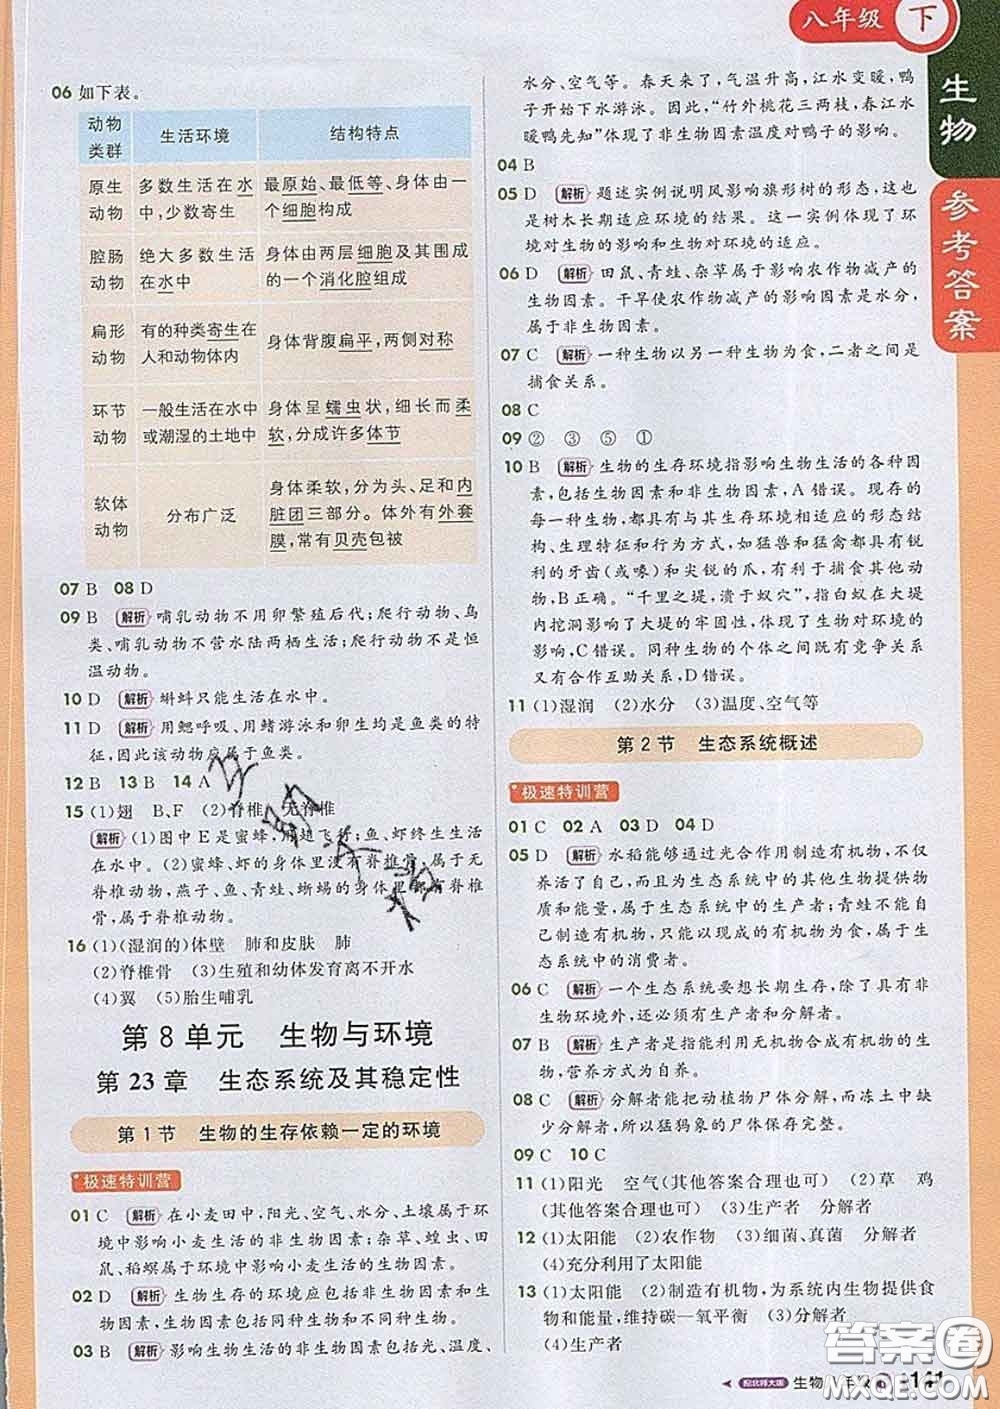 八年级 下
生物
参考答案
06 如下表。
动物类群 生活环境 结构特点
原生 多数生活在水 最原始、最低等、身体由一
动物 中,少数寄生 个细胞构成
腔肠 绝大多数生活 身体由两层细胞及其围成
动物 在水中 的一个消化腔组成
扁形 有的种类寄生在 身体背腹扁平,两侧对称
动物 人和动物体内
环节 一般生活在水中 身体呈蠕虫状,细长而柔
动物 或潮湿的土地中 软,分成许多体节
软体 分布广泛 身体柔软,分为头、足和内
动物 脏团三部分。体外有外套
膜,常有贝壳包被
07 B 08 D
09 B 解析 哺乳动物不用卵繁殖后代;爬行动物、鸟
类、哺乳动物不营水陆两栖生活;爬行动物不是恒
温动物。
10 D 解析 蝌蚪只能生活在水中。
11 D 解析 用鳃呼吸、用鳍游泳和卵生均是鱼类的特
征,因此该动物应属于鱼类。
12 B 13 B 14 A
15 (1)翅 B、F (2)脊椎 无脊椎
解析 (1)图中E是蜜蜂,用翅飞行;鱼、虾终生生活
在水中。(2)蜜蜂、虾的身体里没有脊椎骨,属于无
脊椎动物,燕子、鱼、青蛙、蜥蜴的身体里都有脊椎
骨,属于脊椎动物。
16 (1)(湿润的)体壁 肺和皮肤 肺
(2)脊椎骨 (3)生殖和幼体发育离不开水
(4)翼 (5)胎生哺乳
第8单元 生物与环境
第23章 生态系统及其稳定性
第1节 生物的生存依赖一定的环境
极速特训营
01 C 解析 在小麦田中,阳光、空气、水分、土壤属于环
境中影响小麦生活的非生物因素;杂草、蝗虫、田
鼠、稻螟属于环境中影响小麦生活的生物因素。
02 D 解析 生物生存的环境应包括非生物因素和生
物因素,生物因素包括同种生物和不同种生物。
03 B 解析 影响生物生活的非生物因素包括光、温度、
水分、空气等。春天来了,气温升高,江水变暖,鸭
子开始下水游泳。因此,“竹外桃花三两枝,春江水
暖鸭先知”体现了非生物因素温度对鸭子的影响。
04 B
05 D 解析 题述实例说明风影响旗形树的形态,这也
是树木长期适应环境的结果。这一实例体现了环
境对生物的影响和生物对环境的适应。
06 D 解析 田鼠、青蛙、杂草属于影响农作物减产的
生物因素。干旱使农作物减产的环境因素是水分,
属于非生物因素。
07 C 解析 一种生物以另一种生物为食,二者之间是
捕食关系。
08 C
09 ② ③ ⑤ ①
10 B 解析 生物的生存环境指影响生物生活的各种因
素,包括生物因素和非生物因素,A错误。现存的
每一种生物,都具有与其生存环境相适应的形态结
构、生理特征和行为方式,如猛兽和猛禽都具有锐
利的牙齿(或喙)和尖锐的爪,有利于捕获其他动
物,B正确。“千里之堤,溃于蚁穴”,指白蚁在大堤
内挖洞影响了大堤的牢固性,体现了生物对环境的
影响,C错误。同种生物的个体之间既有竞争关系
又有合作互助关系,D错误。
11 (1)湿润 (2)水分 (3)温度、空气等
第2节 生态系统概述
极速特训营
01 C 02 A 03 D 04 D
05 D 解析 水稻能够通过光合作用制造有机物,不仅
养活了自己,而且为生态系统中的其他生物提供物
质和能量,属于生态系统中的生产者;青蛙不能自
己制造有机物,只能以现成的有机物为食,属于生
态系统中的消费者。
06 C 解析 一个生态系统要想长期生存,除了具有非
生物环境外,还必须有生产者和分解者。
07 B 解析 生产者是指能利用无机物合成有机物的生
物,营养方式为自养。
08 C 解析 分解者能把动植物尸体分解,而冻土中缺
少分解者,因此猛犸象的尸体保存完整。
09 C 10 C
11 (1)阳光 空气(其他答案合理也可) (2)草 鸡
(其他答案合理也可) (3)生产者 分解者
12 (1)太阳能 (2)农作物 (3)细菌、真菌 分解者
(4)充分利用了太阳能
13 (1)太阳能 (2)制造有机物,为系统内生物提供食
物和能量,维持碳—氧平衡 (3)分解者
(4)生产者
配北师大版 生物 八年级 141
答案圈
MXQE.COM